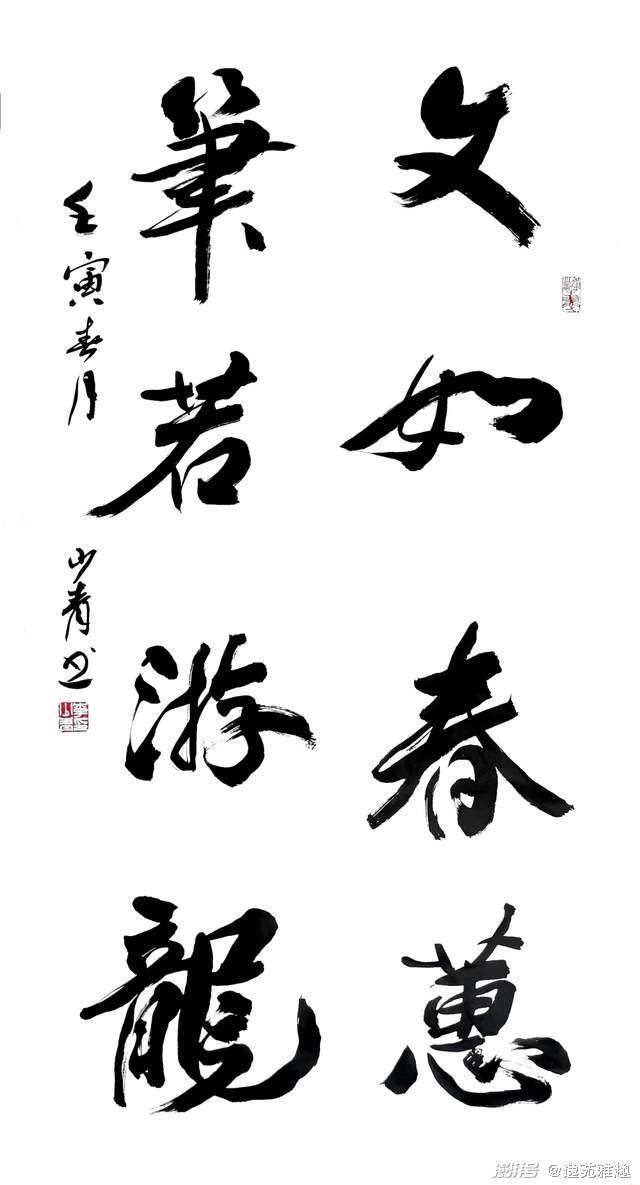 文如春蕙
筆若游龍
壬寅春月 山青书
澎湃号 @逸苑雅趣